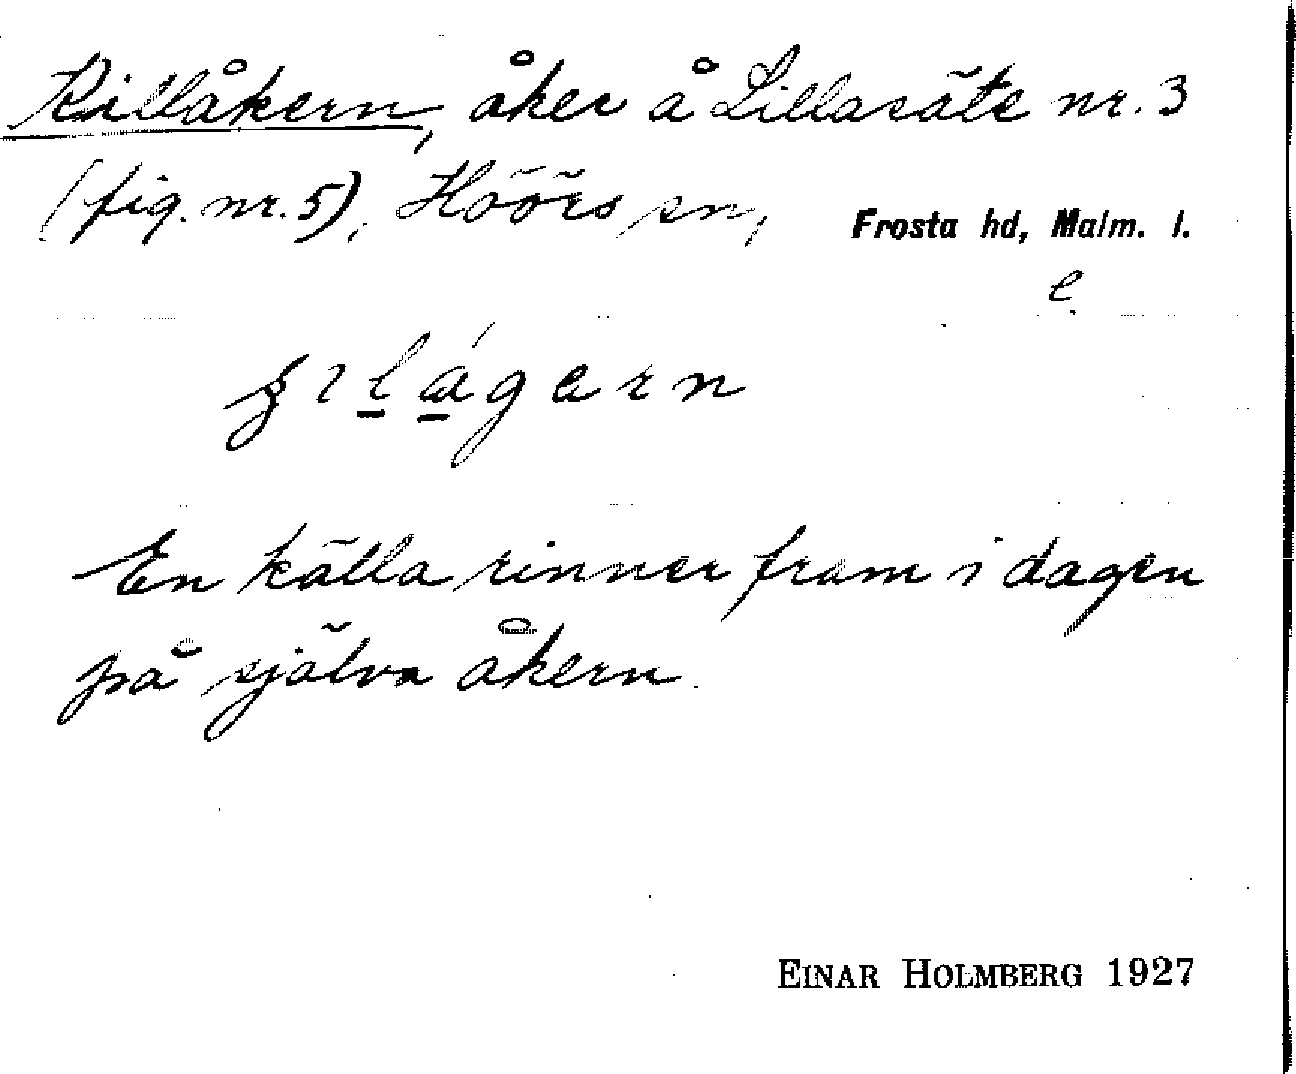 Killåkern, åker å Lillasäte nr. 3
(fig. nr. 5), Höörs sn, Frosta hd, Malm. l.
e.
En källa rinner fram i dagen
på själva åkern.
EINAR HOLMBERG 1927